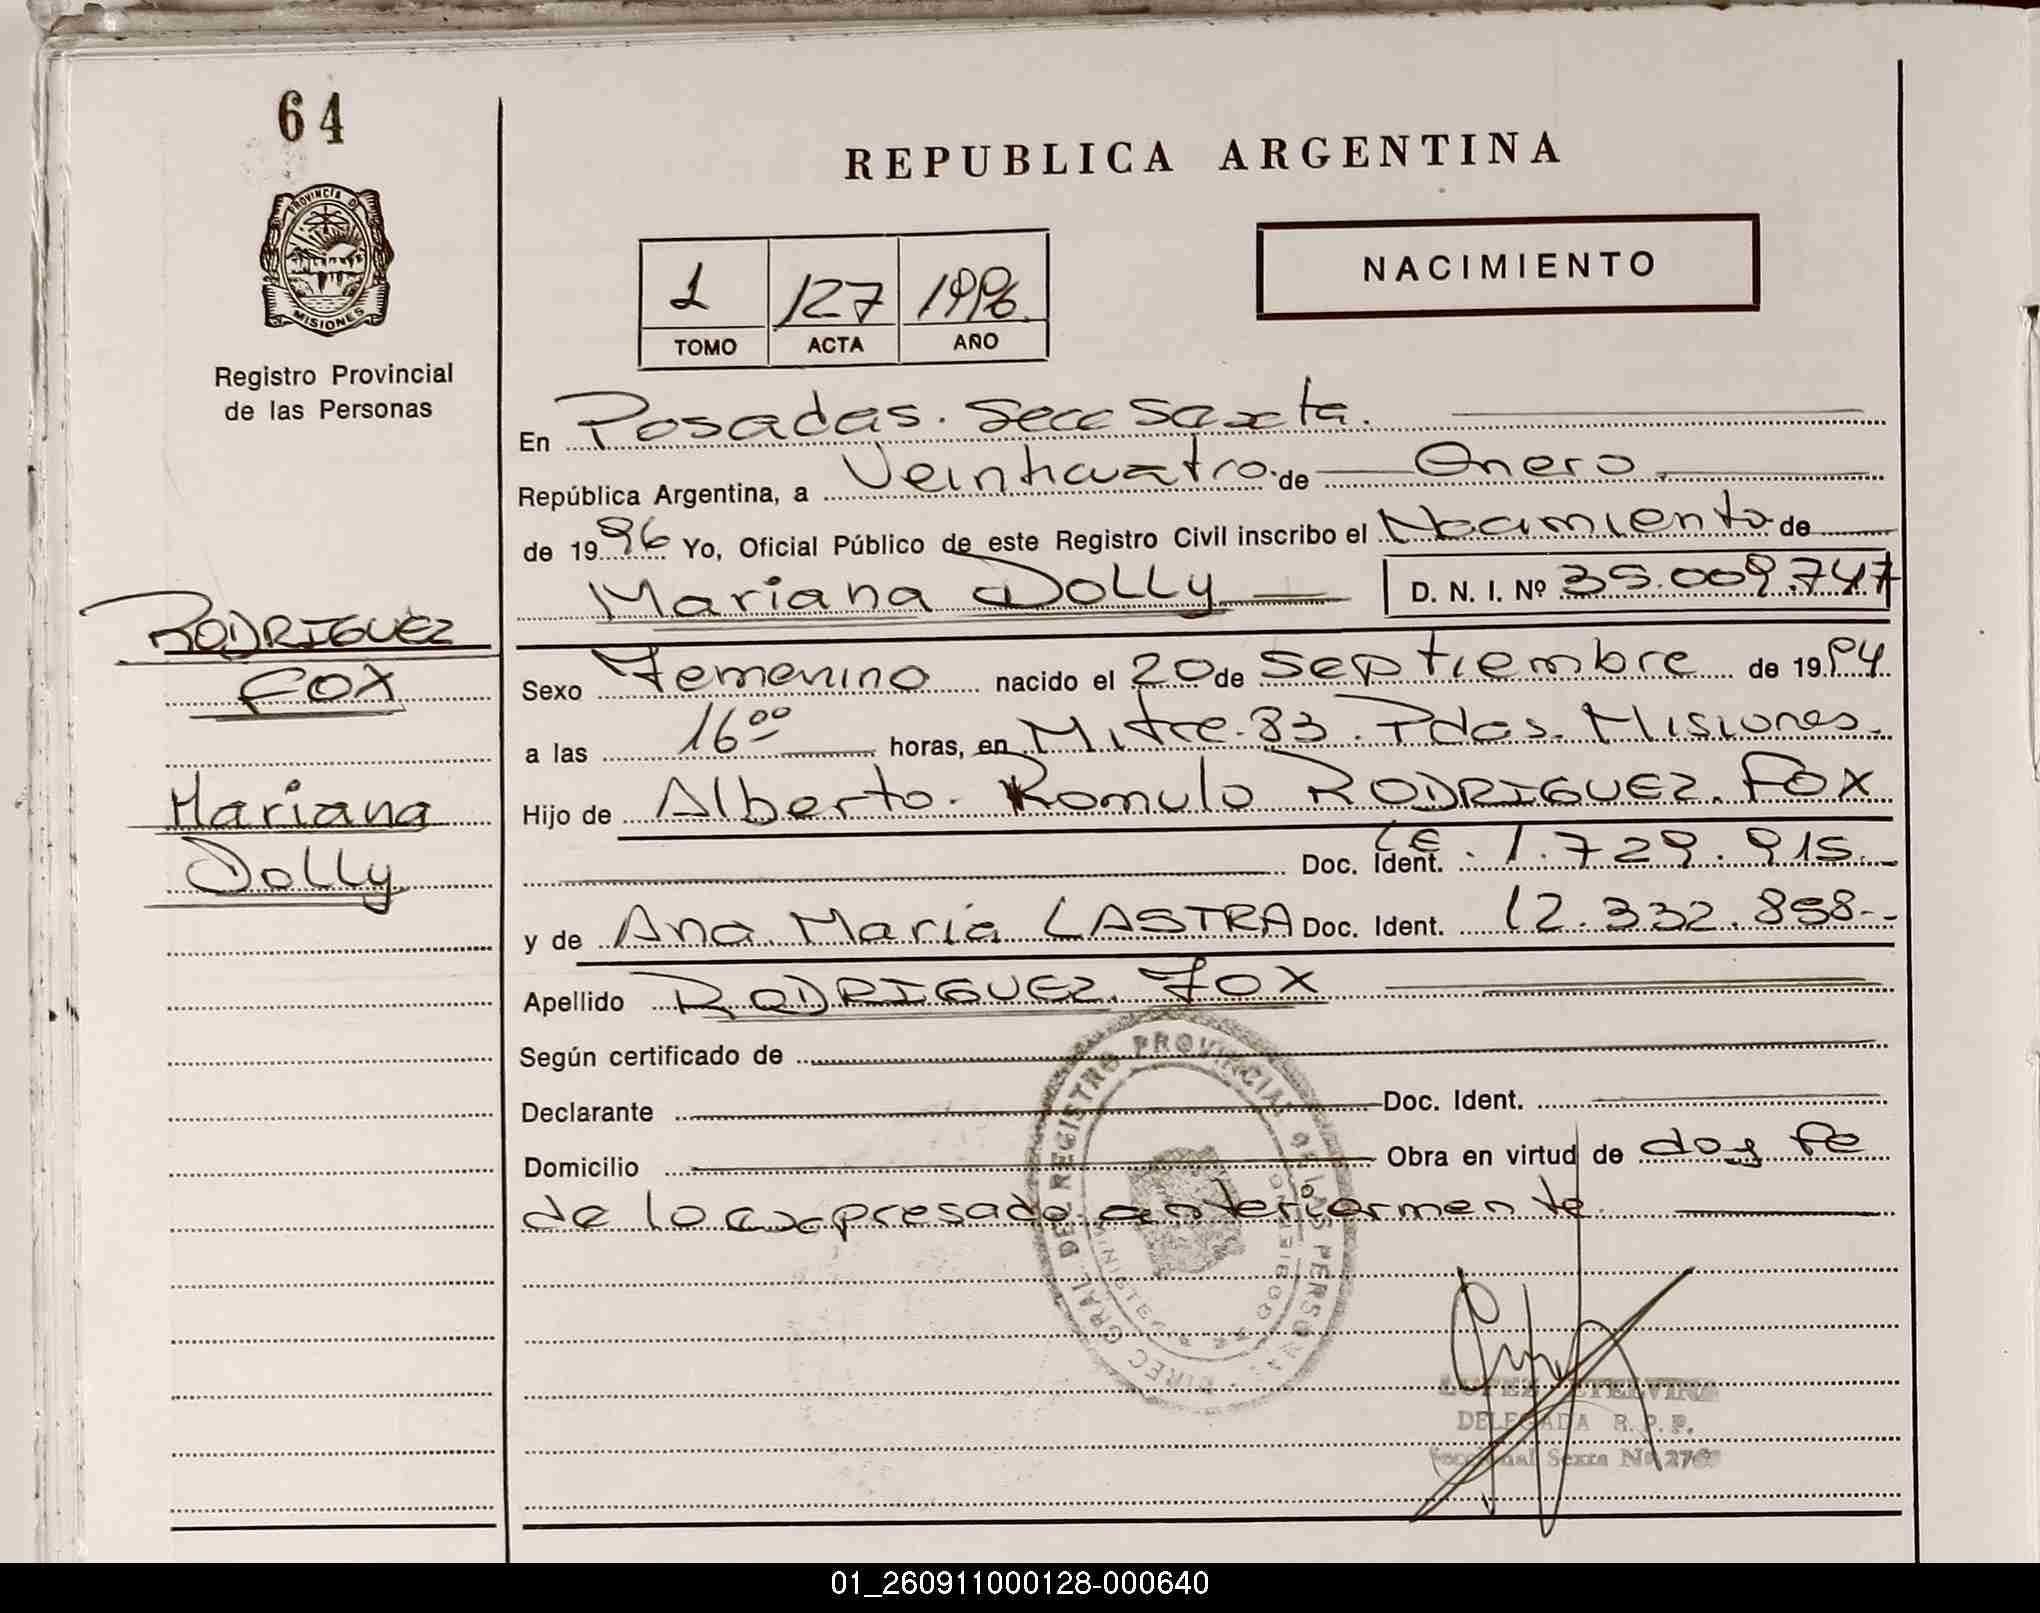 64
PROVINCIA DE
MISIONES
Registro Provincial
de las Personas
REPUBLICA ARGENTINA
NACIMIENTO
1 127 1996
TOMO ACTA AÑO
En Posadas. Secc Sexta.
República Argentina, a Veinticuatro de Enero
de 1996 Yo, Oficial Público de este Registro Civil inscribo el Nacimiento de
Mariana Dolly D. N. I. Nº 35.009.747
RODRIGUEZ
FOX
Mariana
Dolly
Sexo Femenino nacido el 20 de Septiembre de 1994
a las 16ºº horas, en Mitre 83. Pdas. Misiones.
Hijo de Alberto Romulo RODRIGUEZ FOX
Doc. Ident. LE. 1.729.915
y de Ana Maria LASTRA Doc. Ident. 12.332.858
Apellido RODRIGUEZ FOX
Según certificado de
Declarante Doc. Ident.
Domicilio Obra en virtud de doy fe
de lo expresado anteriormente.
DIREC GRAL DEL REGISTRO PROVINCIAL DE LAS PERSONAS
LOPEZ ETELVINA
DELEGADA R.P.P.
Seccional Sexta
01_260911000128-000640